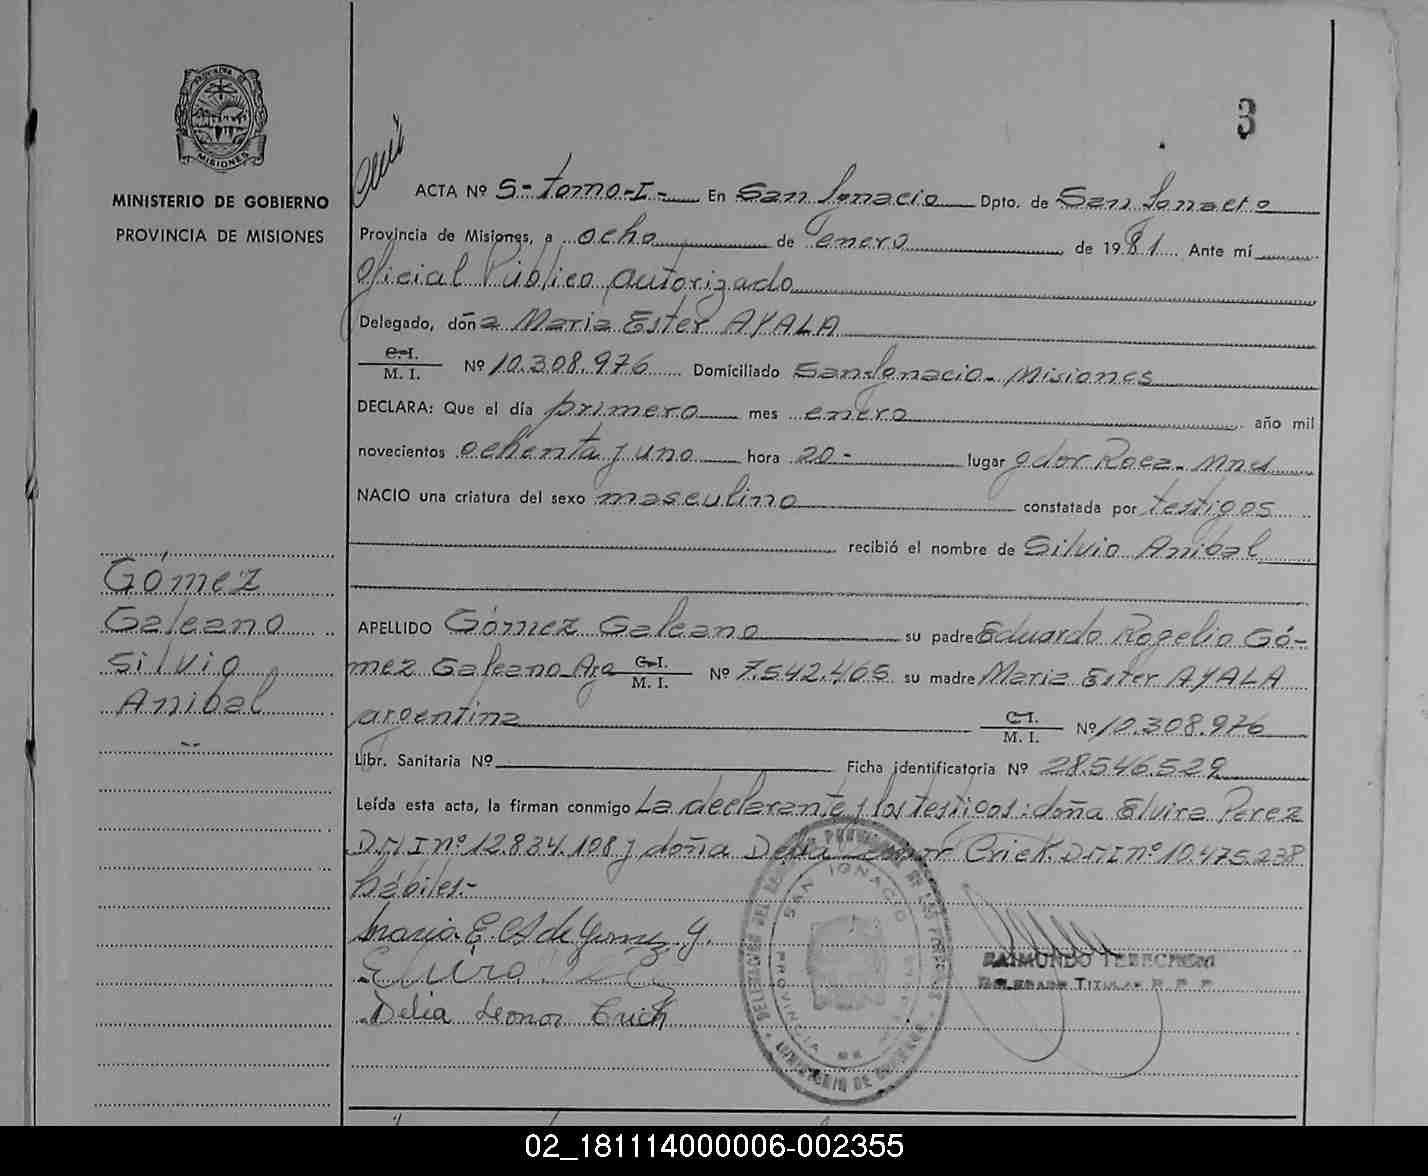 3
PROVINCIA DE
MISIONES
MINISTERIO DE GOBIERNO
PROVINCIA DE MISIONES
ACTA Nº 5- tomo-I- En San Ignacio Dpto. de San Ignacio
Provincia de Misiones, a ocho de enero de 1981 Ante mí
Oficial Público autorizado
Delegado, doña Maria Ester AYALA
C.I.
M. I. Nº 10.308.976 Domiciliado San Ignacio- Misiones
DECLARA: Que el día primero mes enero año mil
novecientos ochenta y uno hora 20- lugar gdor Roca- Mnes
NACIO una criatura del sexo masculino constatada por testigos
recibió el nombre de Silvio Anibal
APELLIDO Gómez Galeano su padre Eduardo Rogelio Gó-
mez Galeano Arg C.I. M. I. Nº 7.542.465 su madre Maria Ester AYALA
argentina C.I. M. I. Nº 10.308.976
Libr. Sanitaria Nº Ficha identificatoria Nº 28.546.529
Leída esta acta, la firman conmigo La declarante y los testigos: doña Elvira Perez
D.N.I nº 12.834.108 y doña Delia Leonor Criek D.N.I nº 10.475.238
hábiles.-
Gómez
Galeano
Silvio
Anibal
Maria E. A. de Gomez G.
Elvira
Delia Leonor Crick
SAN IGNACIO
PROVINCIA DE
DELEGACION DEL REGISTRO PROVINCIAL DE LAS PERSONAS
MINISTERIO DE GOBIERNO
RAIMUNDO
DELEGADO TITULAR R. P. P.
02_181114000006-002355